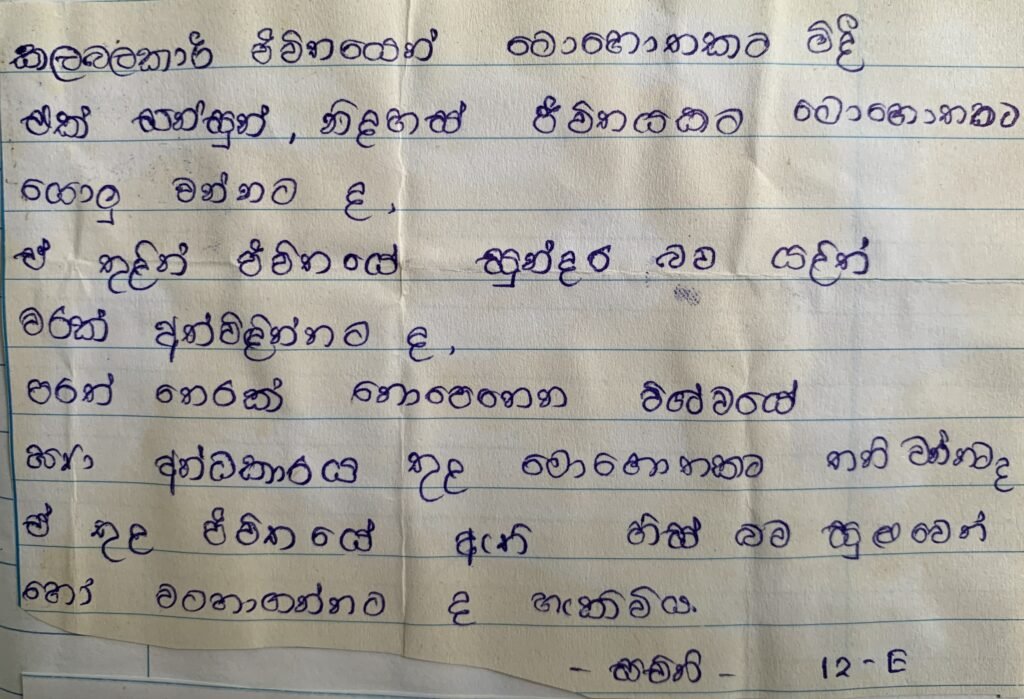 කලබලකාරී ජීවිතයෙන් මොහොතකට මිදී
එක් සන්සුන්, නිදහස් ජීවිතයකට මොහොතකට
ගොලු වන්නට ද,
ඒ තුළින් ජීවිතයේ සුන්දර බව යළිත්
වරක් අත්විඳින්නට ද,
පරත් තෙරක් නොපෙනෙන විශ්වයේ
අන්ධකාරය තුළ මොහොතකට තනි වන්නට ද
ඒ තුළ ජීවිතයේ ඇති හිස් බව සුළුවෙන්
හෝ වටහාගන්නට ද හැකිවිය.
- - 12-E